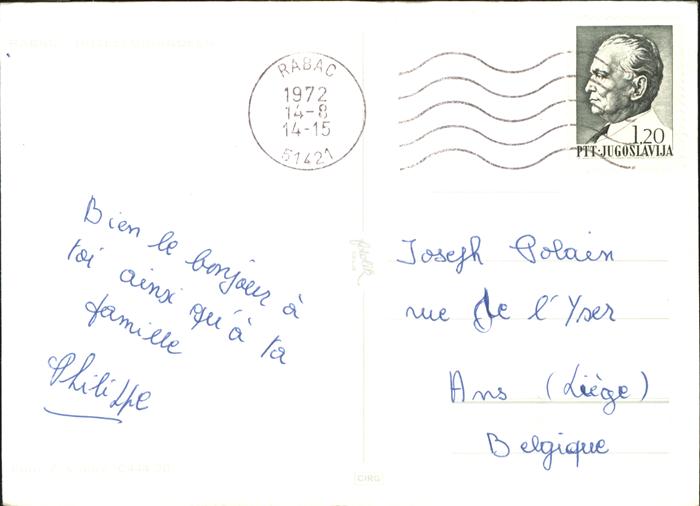 RABAC
1972
14-8
14-15
51421
1.20
PTT-JUGOSLAVIJA
Bien le bonjour à
toi ainsi qu'à ta
famille
Philippe
Joseph Polain
rue de l'Yser
Ans (Liège)
Belgique
CIRG